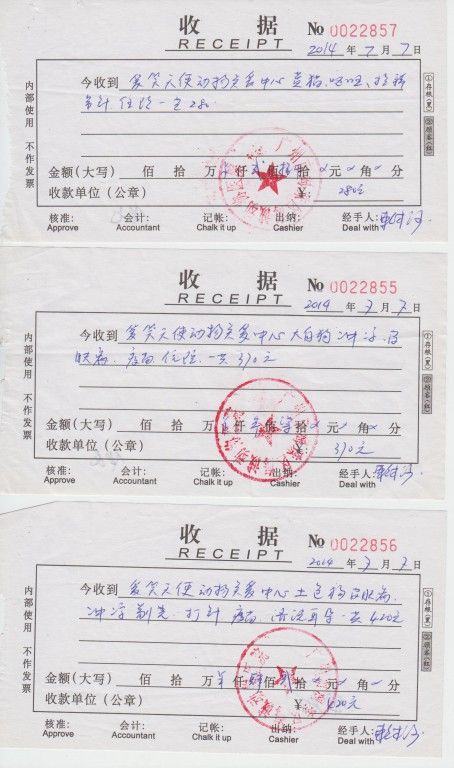 收 据
RECEIPT
No 0022857
2014 年 7 月 7 日
今收到 爱笑天使动物关爱中心
针 住院一共280
金额(大写) 佰 拾 万 仟 佰 拾 元 角 分
收款单位(公章) ¥ 280元
核准: 会计: 记帐: 出纳: 经手人:
Approve Accountant Chalk it up Cashier Deal with
内部使用 不作发票
①存根(黑)
②顾客(红)
收 据
RECEIPT
No 0022855
2014 年 7 月 7 日
今收到 爱笑天使动物关爱中心 大白狗 冲凉
疫苗 住院 一共310元
金额(大写) 佰 拾 万 仟 佰 拾 元 角 分
收款单位(公章) ¥ 310元
核准: 会计: 记帐: 出纳: 经手人:
Approve Accountant Chalk it up Cashier Deal with
内部使用 不作发票
①存根(黑)
②顾客(红)
收 据
RECEIPT
No 0022856
2014 年 7 月 7 日
今收到 爱笑天使动物关爱中心 土色狗
冲凉 剃毛 打针 疫苗 清洗耳朵 一共420元
金额(大写) 佰 拾 万 仟 肆 佰 贰 拾 元 角 分
收款单位(公章) ¥ 420元
核准: 会计: 记帐: 出纳: 经手人:
Approve Accountant Chalk it up Cashier Deal with
内部使用 不作发票
①存根(黑)
②顾客(红)